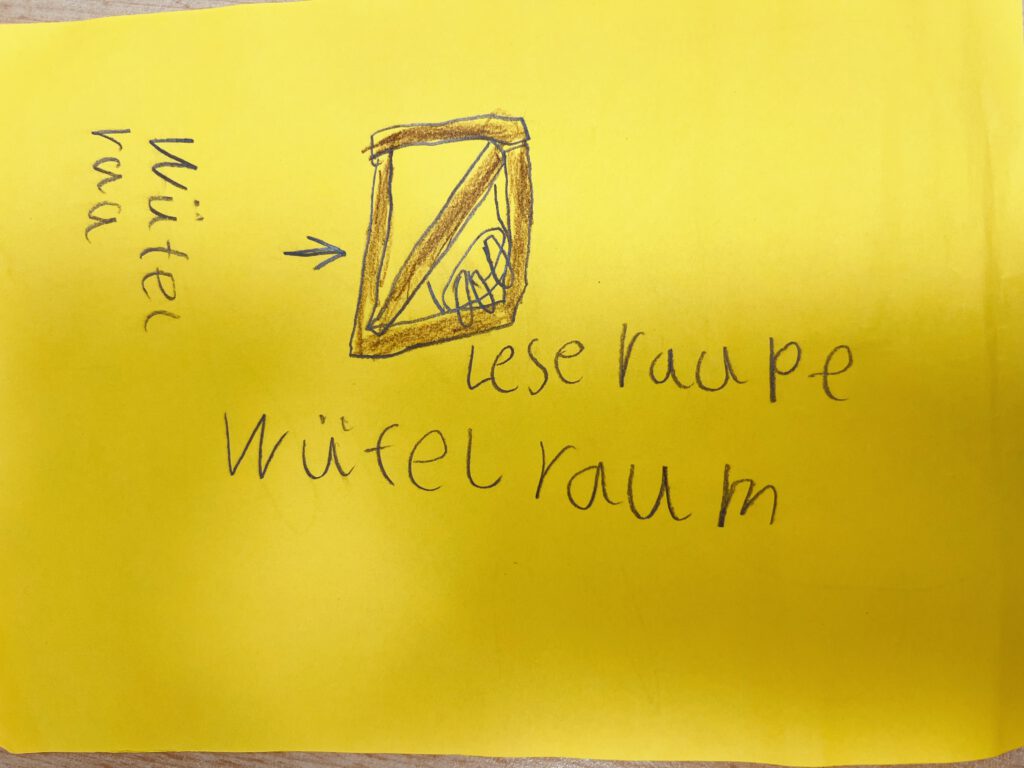 Wüfel
raa
Leseraupe
Wüfelraum